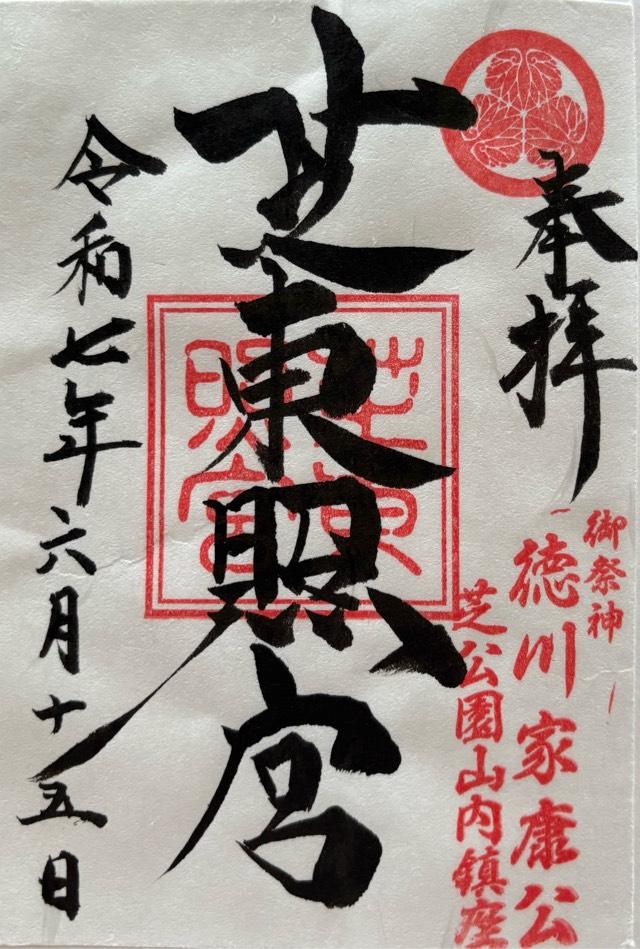 奉拝
御祭神
徳川家康公
芝公園山内鎮座
芝東照宮
芝東照宮
令和七年六月十五日